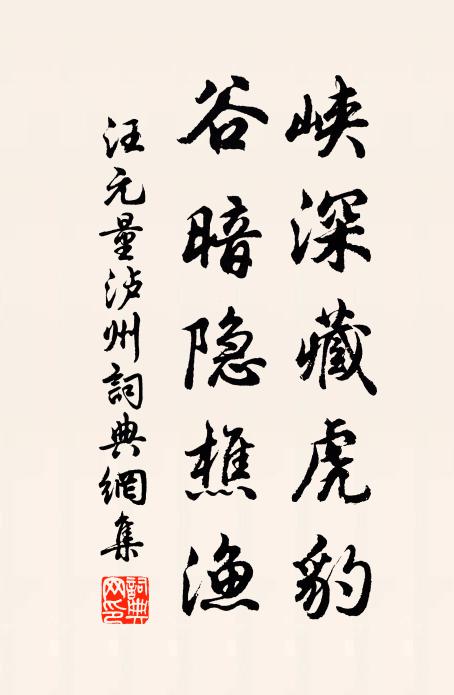 峡深藏虎豹
谷暗隐樵渔
汪元量泸州詞典網集
詞典
网印